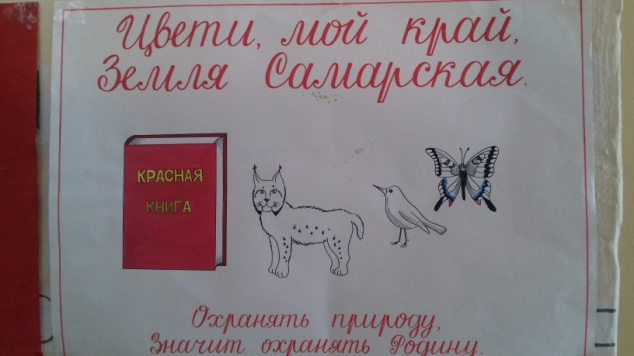 Цвети, мой край,
Земля Самарская.
КРАСНАЯ
КНИГА
Охранять природу,
Значит охранять Родину.